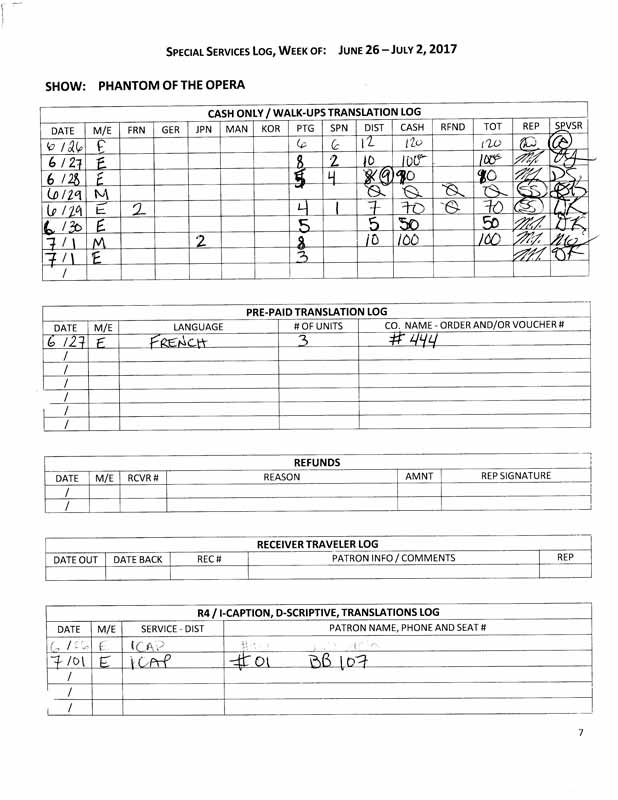 SPECIAL SERVICES LOG, WEEK OF: JUNE 26 – JULY 2, 2017
SHOW: PHANTOM OF THE OPERA
CASH ONLY / WALK-UPS TRANSLATION LOG
DATE M/E FRN GER JPN MAN KOR PTG SPN DIST CASH RFND TOT REP SPVSR
6/26 E 6 6 12 120 120
6/27 E 8 2 10 100 100 M.J.
6/28 E 5 4 9 90 90 M.J. DS
6/29 M 0 0 0 0 SS
6/29 E 2 4 1 7 70 0 70 SS
6/30 E 5 5 50 50 M.J.
7/1 M 2 8 10 100 100 M.J.
7/1 E 3 M.J.
/
PRE-PAID TRANSLATION LOG
DATE M/E LANGUAGE # OF UNITS CO. NAME - ORDER AND/OR VOUCHER #
6/27 E FRENCH 3 # 444
/
/
/
/
/
/
REFUNDS
DATE M/E RCVR # REASON AMNT REP SIGNATURE
/
/
RECEIVER TRAVELER LOG
DATE OUT DATE BACK REC # PATRON INFO / COMMENTS REP
R4 / I-CAPTION, D-SCRIPTIVE, TRANSLATIONS LOG
DATE M/E SERVICE - DIST PATRON NAME, PHONE AND SEAT #
E ICAP
7/01 E ICAP #01 BB 107
/
/
/
7